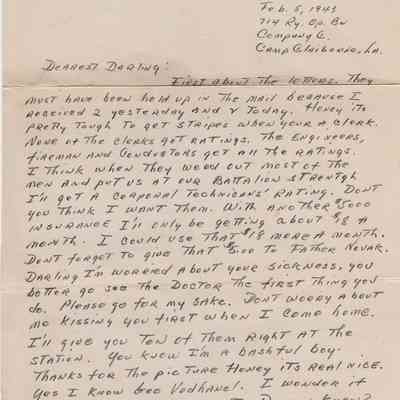 Feb. 5, 1943
714 Ry. Op. Bn
Company C.
Camp Claiborne, La.
Dearest Darling:
First about the letters. They
must have been held up in the mail because I
received 2 yesterday and 2 today. Honey its
pretty tough to get stripes when your a clerk.
None of the clerks got ratings. The Engineers,
fireman and Conductors get all the ratings.
I think when they weed out most of the
men and put us at our Battalion strength
I'll get a Corporal Technicians' rating. Dont
you think I want them. With another $5000
insurance I'll only be getting about $18 a
month. I could use that $18 more a month.
Dont forget to give that $500 to Father Novak.
Darling I'm worred about your sickness, you
better go see the Doctor the first thing you
do. Please go for my sake. Dont worry about
me kissing you first when I come home.
I'll give you ten of them right at the
station. You know I'm a bashful boy.
Thanks for the picture Honey its real nice.
Yes I know Geo Vodhanel. I wonder if